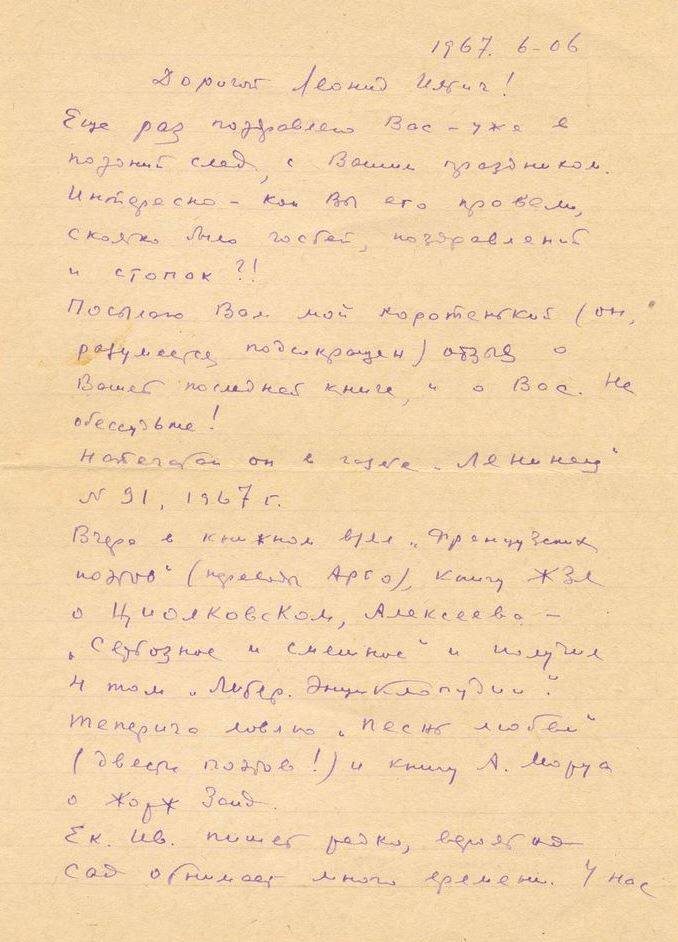 1967. 6-06
Дорогой Леонид Ильич!
Еще раз поздравляю Вас – уже в
поздний след, с Вашим праздником.
Интересно – как Вы его провели,
сколько было гостей, поздравлений
и стопок?!
Посылаю Вам мой коротенький (он,
разумеется подсокращен) отзыв о
Вашей последней книге, и о Вас. Не
обессудьте!
Напечатан он в газете „Ленинец"
N 91, 1967 г.
Вчера в книжном взял „Французских
поэтов" (переводы Арго), книгу ЖЗЛ
о Циолковском, Алексеева –
„Серьозное и смешное" и получил
4 том „Литер. Энциклопудии".
Теперича ловлю „Песнь любви"
(двести поэтов!) и книгу А. Моруа
о Жорж Занд.
Ек. Ив. пишет редко, вероятно
сад отнимает много времени. У нас